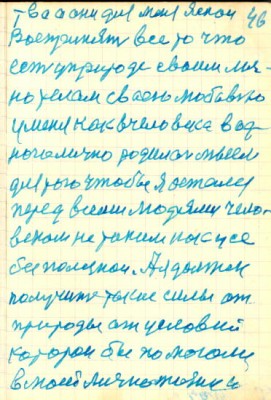 тва они для меня ясной 46
Воспринят все то что
есть у природе своим лич-
но телам своею любовью
у меня как в человека в од-
ного лично родилась мысль
для того чтобы я остался
перед всеми людьми чело-
веком не таким как усе
бесполезной. А я должен
получить такие силы от
природы от условий
которой бы помогали
в моей лично жизни